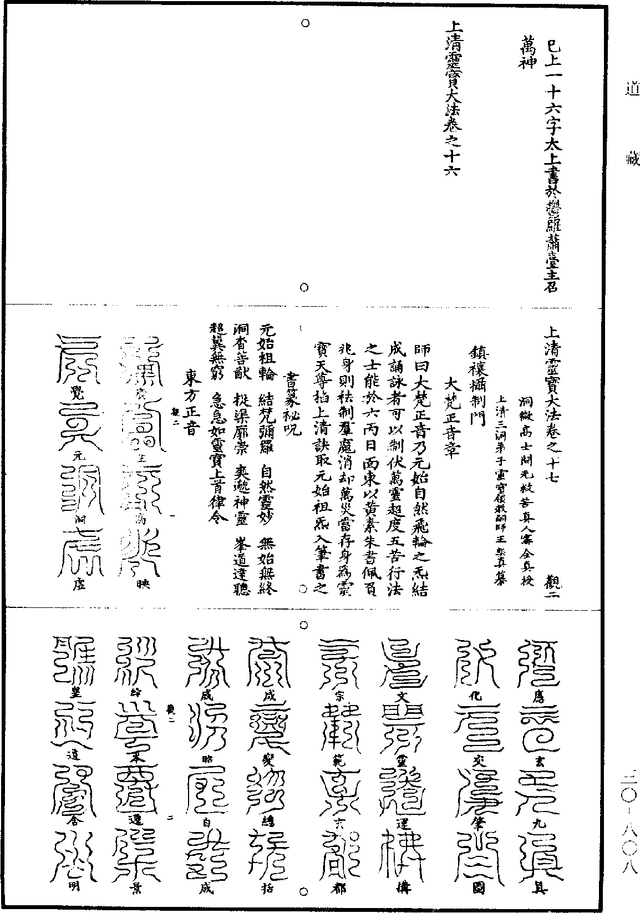 道藏
已上一十六字太上書於鬱羅蕭臺主召
萬神
上清靈寶大法卷之十六
上清靈寶大法卷之十七 觀二
洞微高士開光救苦真人寗全真授
上清三洞弟子靈寶領教嗣師王契真纂
鎮禳攝制門
大梵正音章
師曰大梵正音乃元始自然飛輪之炁結
成誦詠者可以制伏萬靈超度五苦行法
之士能於六丙日面東以黃素朱書佩頁
兆身則袪制羣魔消却萬災當存身為靈
寶天尊掐上清訣取元始祖炁入筆書之
書篆秘呪
元始祖輪 結梵彌羅 自然靈妙 無始無終
洞杳善猷 梵廓崇 神靈 峯道達聰
超冀無窮 急急如靈寶上首律令
東方正音
觀二
主 高 映
覺 元 洞 虛
應 玄 九 真
化 交 肇 圖
文 靈 運 構
宗 範 六 都
成 變 總 括
成 昭 自 成
給 景
觀二
二
皇 道 含 明
三〇-八〇八